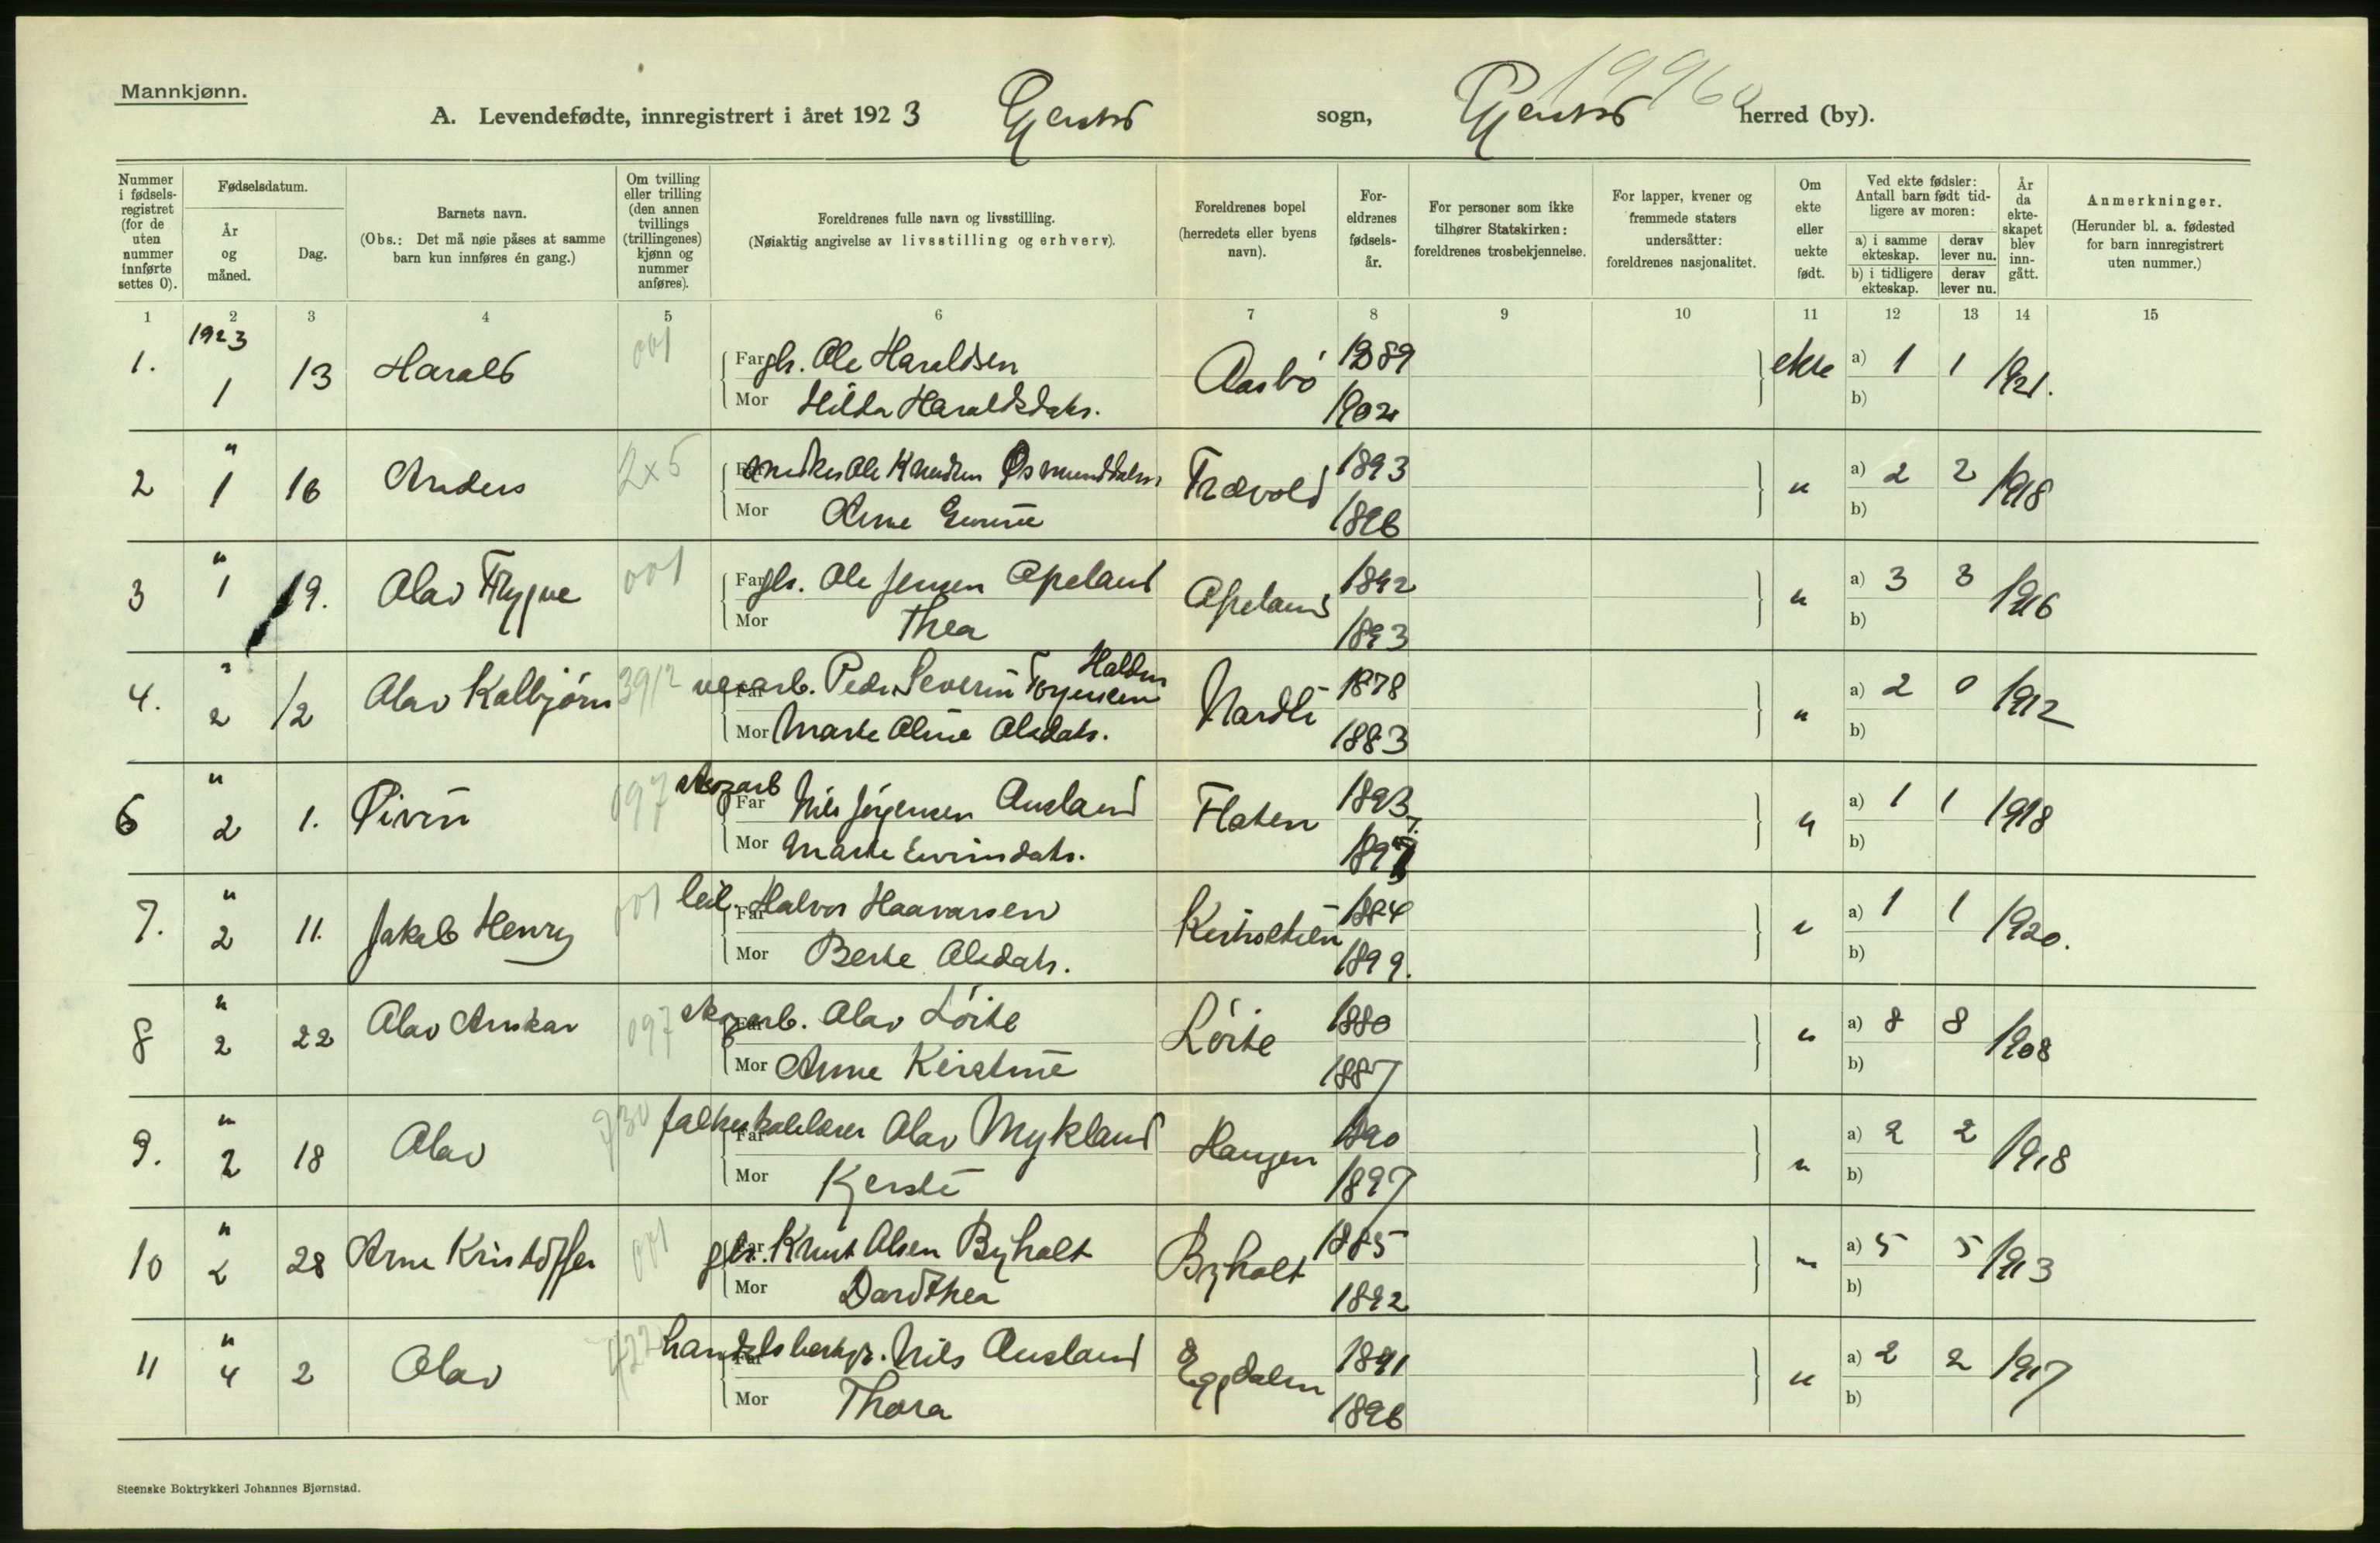 Mannkjønn.
A. Levendefødte, innregistrert i året 1923 Gjerstad sogn, Gjerstad herred (by).
Nummer i fødselsregistret (for de uten nummer innførte settes 0).
Fødselsdatum.
År og måned.
Dag.
Barnets navn.
(Obs.: Det må nøie påses at samme barn kun innføres én gang.)
Om tvilling eller trilling (den annen tvillings (trillingenes) kjønn og nummer anføres).
Foreldrenes fulle navn og livsstilling.
(Nøiaktig angivelse av livsstilling og erhverv).
Foreldrenes bopel (herredets eller byens navn).
Foreldrenes fødselsår.
For personer som ikke tilhører Statskirken: foreldrenes trosbekjennelse.
For lapper, kvener og fremmede staters undersåtter: foreldrenes nasjonalitet.
Om ekte eller uekte født.
Ved ekte fødsler: Antall barn født tidligere av moren:
a) i samme ekteskap. derav lever nu.
b) i tidligere ekteskap. derav lever nu.
År da ekteskapet blev inngått.
Anmerkninger.
(Herunder bl. a. fødested for barn innregistrert uten nummer.)
1 2 3 4 5 6 7 8 9 10 11 12 13 14 15
1. 1923 1 13 Harald 001 Far gbr. Ole Haraldsen Aasbö 1889 ekte a) 1 1 1921.
Mor Hilda Haraldsdatr. 1902 b)
2 " 1 16 Anders Far Ole Knudsen Trævold 1893 " a) 2 2 1918
Mor Anne 1896 b)
3 " 1 19. Olav Trygve 001 Far gbr. Ole Jensen Apeland Apeland 1892 " a) 3 3 1916
Mor Thea 1893 b)
4. " 2 12 Olav Kolbjörn Far Peder Severin Nordli 1878 " a) 2 0 1912
Mor Marte Oline Olsdatr. 1883 b)
6 " 2 1. Öivin 097 skogarb Far Nils Jörgensen Ausland Flaten 1893 " a) 1 1 1918
Mor Marte 1897 b)
7. " 2 11. Jakob Henry 001 leil. Far Halvor Haavorsen 1884 " a) 1 1 1920.
Mor Berte Olsdatr. 1899. b)
8 " 2 22 Olav Anskar 097 skogarb. Far Olav Löite Löite 1880 " a) 8 8 1908
Mor Anne Kirstine 1887 b)
9. " 2 18 Olav 730 folkeskolelærer Far Olav Mykland Haugen 1890 " a) 2 2 1918
Mor Kjersti 1897 b)
10 " 2 28 Arne Kristoffer 001 gbr. Far Knut Olsen Byholt Byholt 1885 " a) 5 5 1913
Mor Dorothea 1892 b)
11 " 4 2 Olav handelsbestyr. Far Nils Ausland Eggdalen 1891 " a) 2 2 1917
Mor Thora 1896 b)
Steenske Boktrykkeri Johannes Bjørnstad.